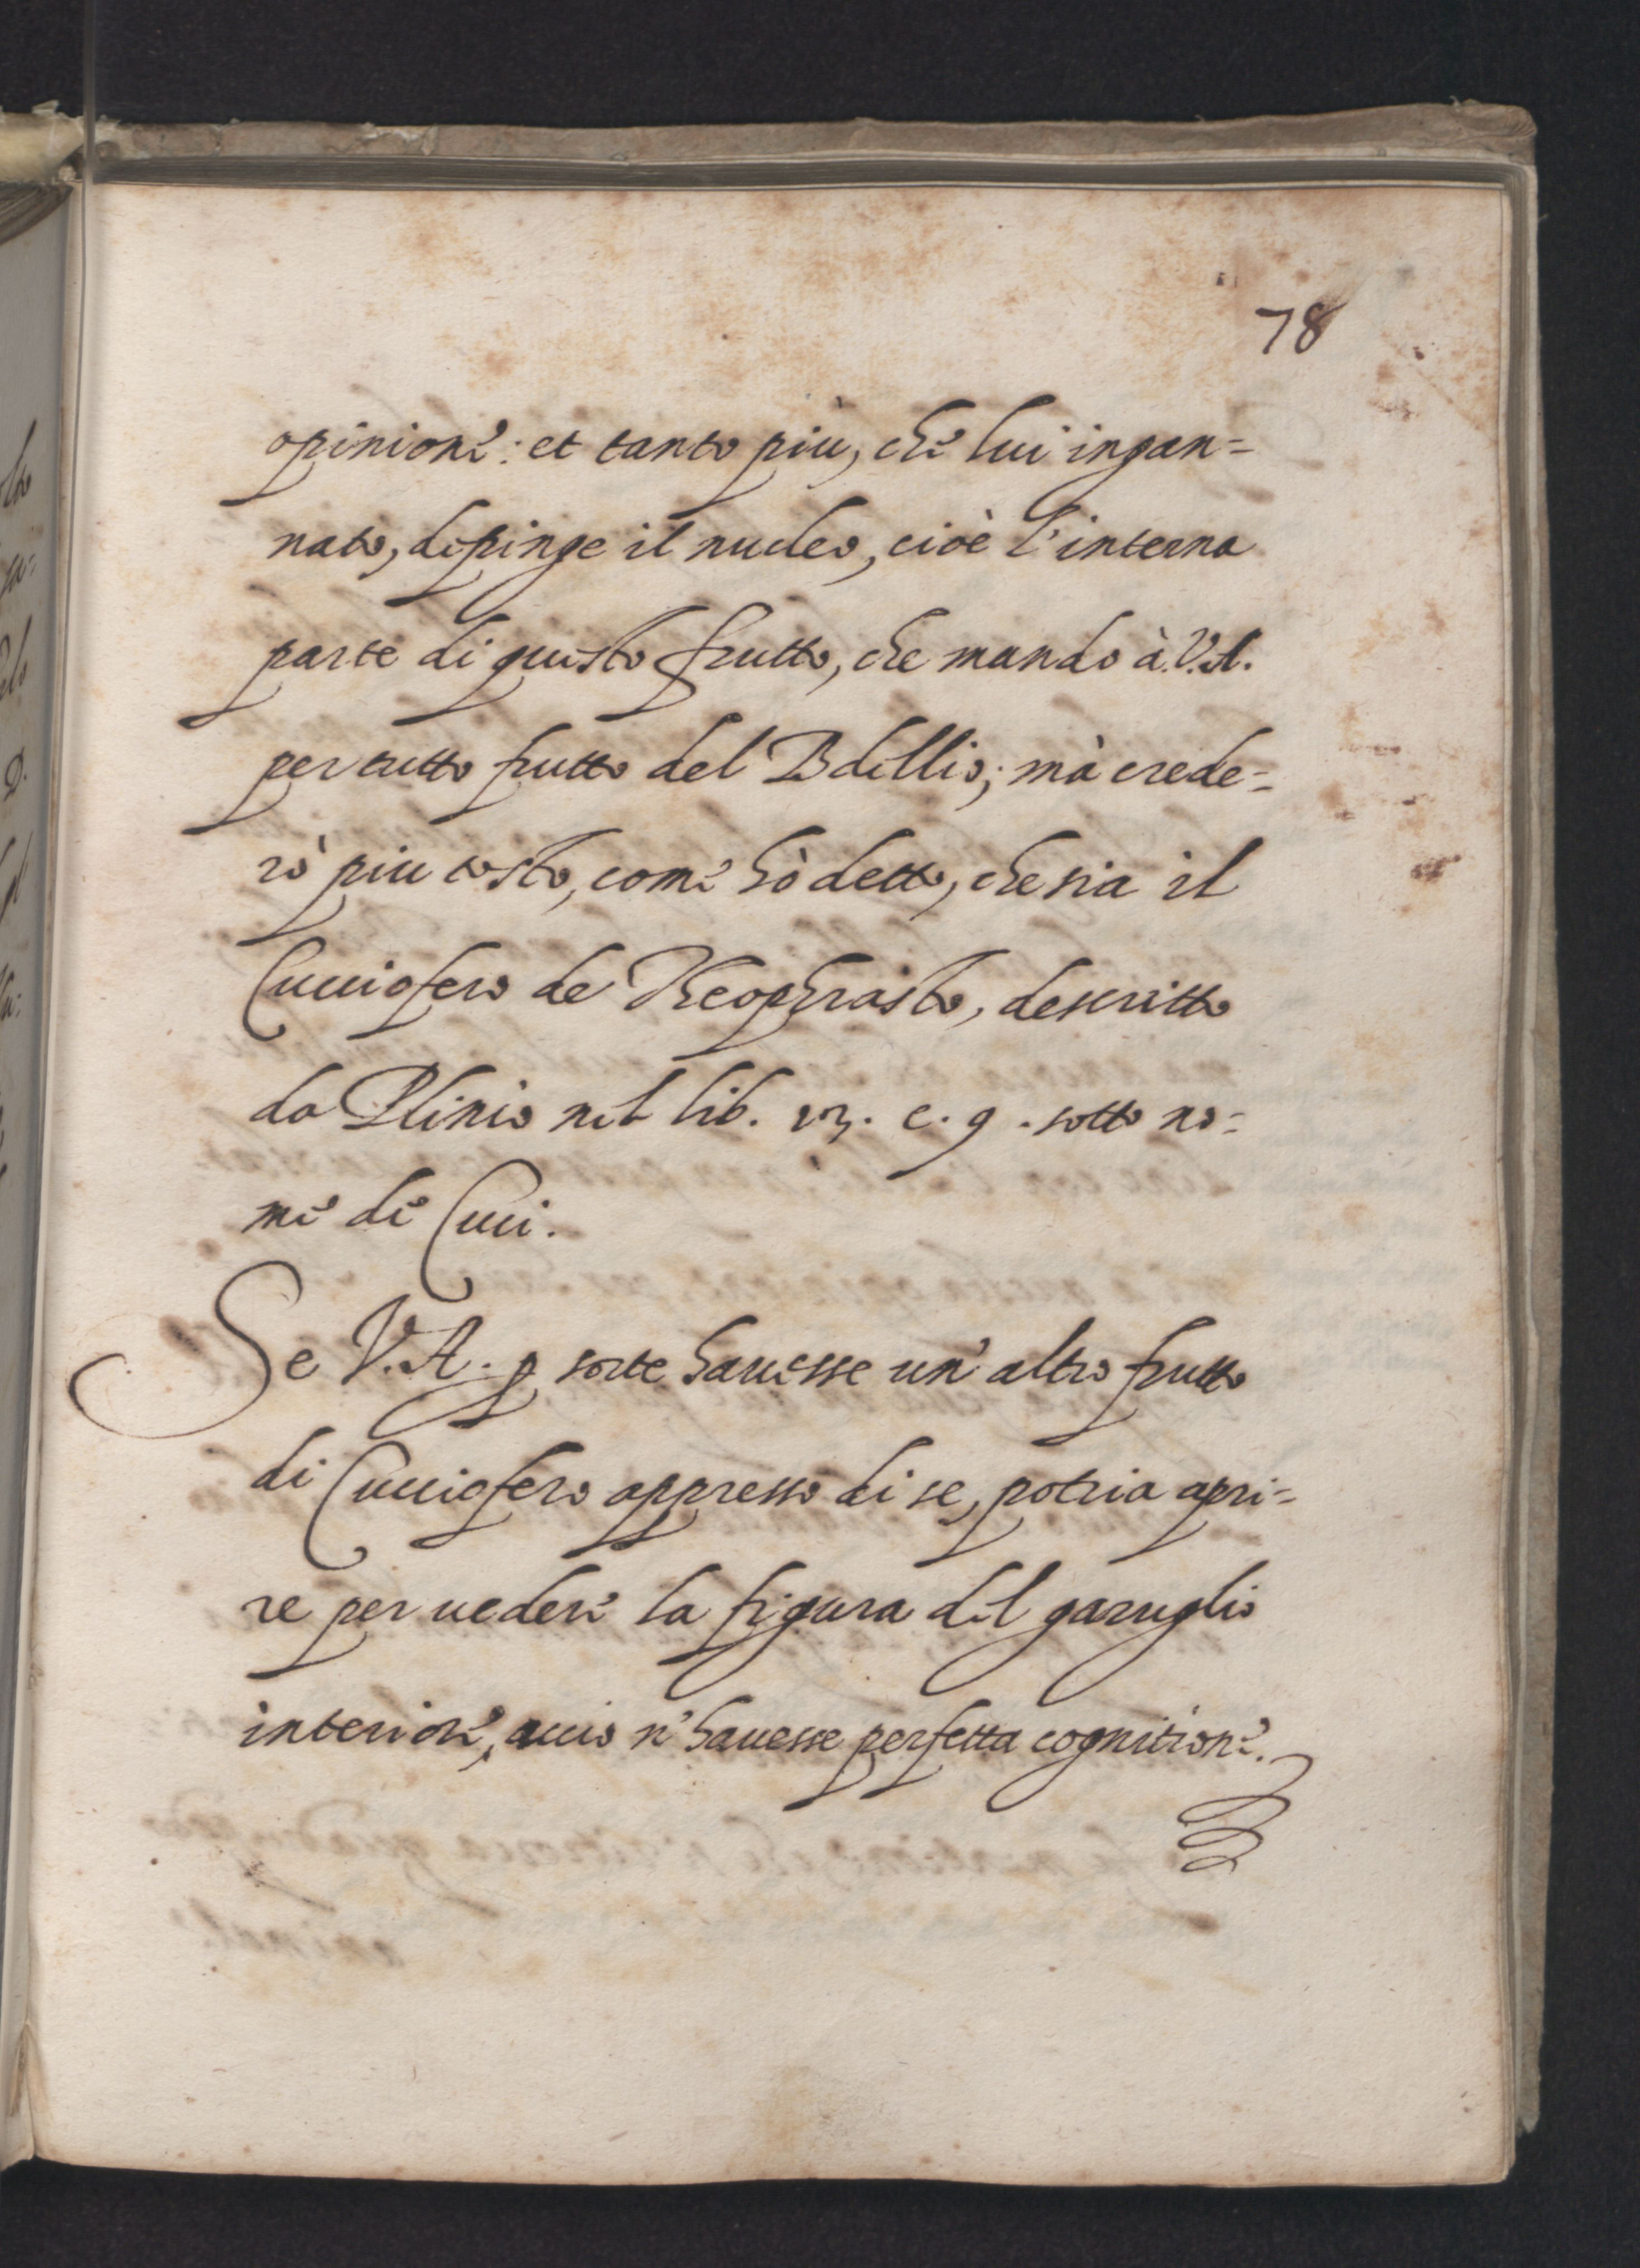 78
opinione: et tanto più, che lui ingan=
nato, depinge il nucleo, cioè l'interna
parte di questo frutto, che mando à V.A.
per tutto frutto del Bdellio; mà crede=
rò piu tosto, come hò detto, che sia il
Cucciofero de Theophrasto, descritto
da Plinio nel lib. 13. c. 9. sotto no=
me de Cuci.
Se V.A. p sorte hauesse un' altro frutto
di Cucciofero appresso di se, potria apri=
re per uedere la figura del garuglio
interiore, accio n' hauesse perfetta cognitione.